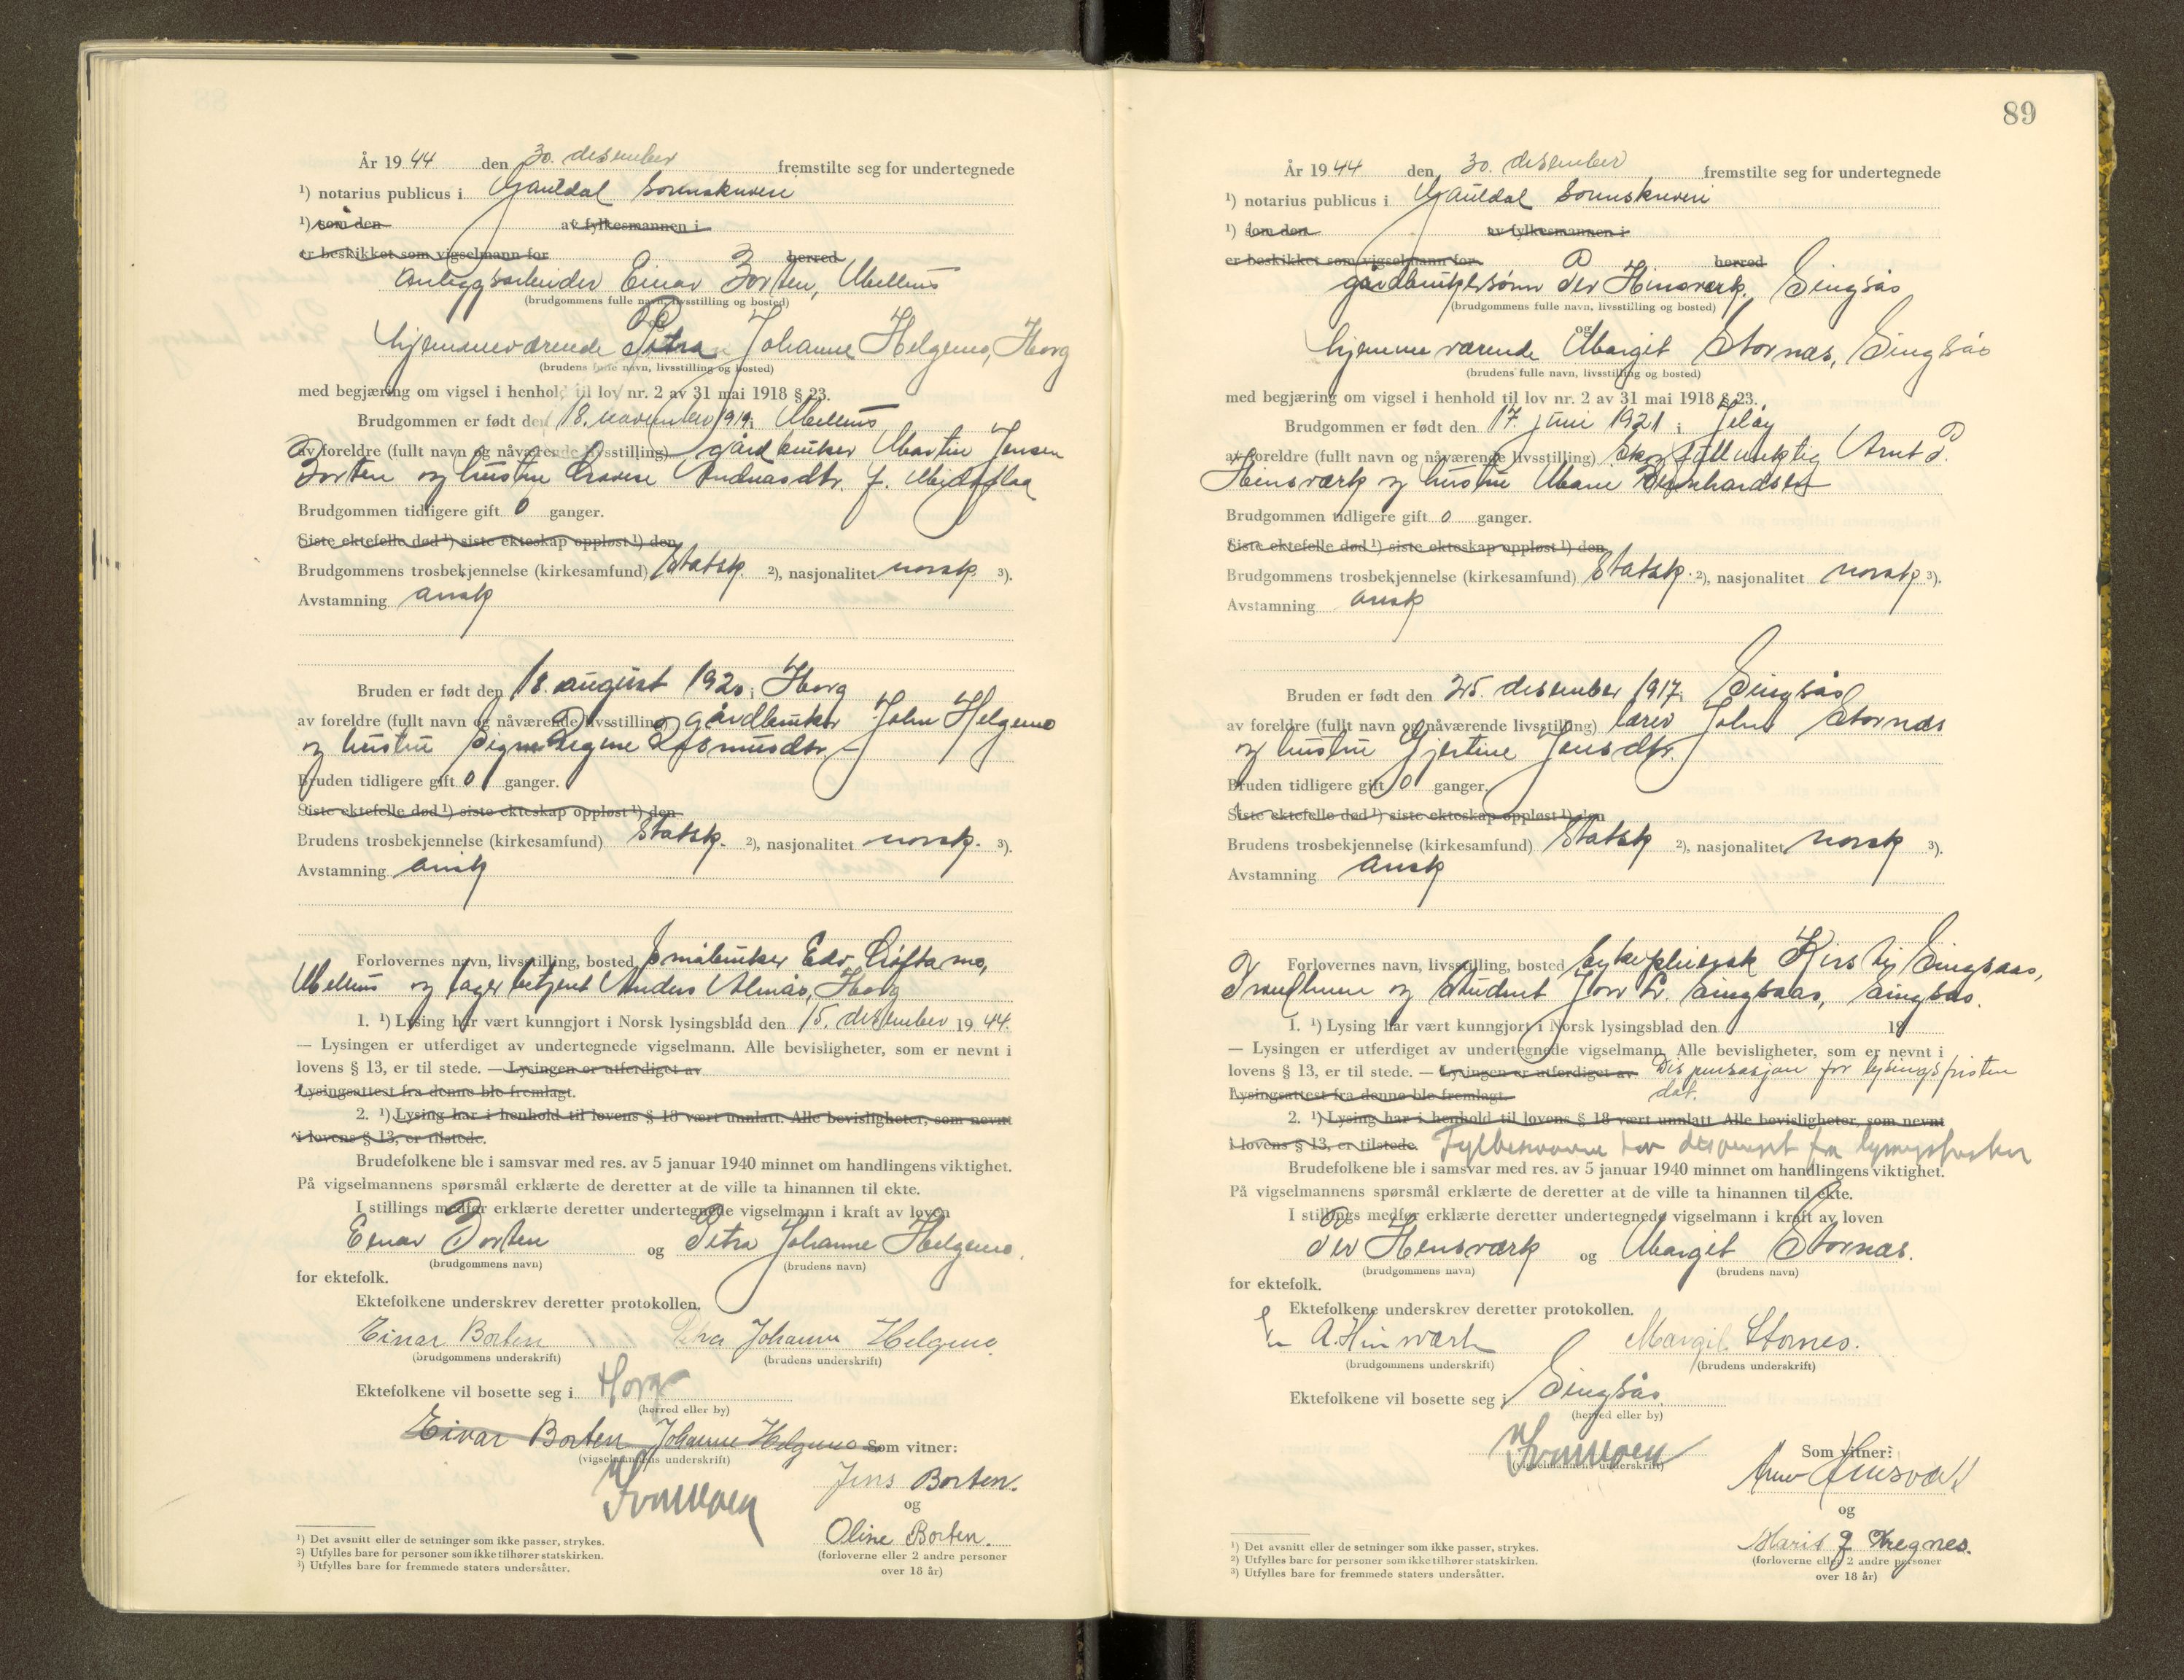 År 19 44 den 30. desember fremstilte seg for undertegnede
¹) notarius publicus i Gauldal Sorenskriveri
¹) som den av fylkesmannen i
er beskikket som vigselmann for herred
Anleggsarbeider Einar Borten, Melhus
(brudgommens fulle navn, livsstilling og bosted)
og
hjemmeværende Petra Johanne Helgemo, Horg
(brudens fulle navn, livsstilling og bosted)
med begjæring om vigsel i henhold til lov nr. 2 av 31 mai 1918 § 23.
Brudgommen er født den 18. november 1919 i Melhus
av foreldre (fullt navn og nåværende livsstilling) gårdbruker Martin Jensen
Borten og hustru Andreasdtr. f.
Brudgommen tidligere gift 0 ganger.
Siste ektefelle død ¹) siste ekteskap oppløst ¹) den
Brudgommens trosbekjennelse (kirkesamfund) Statsk. ²), nasjonalitet norsk ³).
Avstamning arisk
Bruden er født den 18. august 1920 i Horg
av foreldre (fullt navn og nåværende livsstilling) gårdbruker John Helgemo
og hustru Rasmusdtr.
Bruden tidligere gift 0 ganger.
Siste ektefelle død ¹) siste ekteskap oppløst ¹) den
Brudens trosbekjennelse (kirkesamfund) Statsk. ²), nasjonalitet norsk. ³).
Avstamning arisk
Forlovernes navn, livsstilling, bosted Småbruker Edv. Løftamo,
Melhus og lagerbetjent Anders Almås, Horg
1. ¹) Lysing har vært kunngjort i Norsk lysingsblad den 15. desember 19 44.
— Lysingen er utferdiget av undertegnede vigselmann. Alle bevisligheter, som er nevnt i
lovens § 13, er til stede. — Lysingen er utferdiget av
Lysingsattest fra denne ble fremlagt.
2. ¹) Lysing har i henhold til lovens § 18 vært unnlatt. Alle bevisligheter, som nevnt
i lovens § 13, er tilstede.
Brudefolkene ble i samsvar med res. av 5 januar 1940 minnet om handlingens viktighet.
På vigselmannens spørsmål erklærte de deretter at de ville ta hinannen til ekte.
I stillings medfør erklærte deretter undertegnede vigselmann i kraft av loven
Einar Borten og Petra Johanne Helgemo.
(brudgommens navn) (brudens navn)
for ektefolk.
Ektefolkene underskrev deretter protokollen.
Einar Borten Petra Johanne Helgemo.
(brudgommens underskrift) (brudens underskrift)
Ektefolkene vil bosette seg i Horg
(herred eller by)
Einar Borten Johanne Helgemo Som vitner:
(vigselmannens underskrift)
Jens Borten.
og
Oline Borten.
(forloverne eller 2 andre personer
over 18 år)
¹) Det avsnitt eller de setninger som ikke passer, strykes.
²) Utfylles bare for personer som ikke tilhører statskirken.
³) Utfylles bare for fremmede staters undersåtter.
89
År 19 44 den 30. desember fremstilte seg for undertegnede
¹) notarius publicus i Gauldal Sorenskriveri
¹) som den av fylkesmannen i
er beskikket som vigselmann for herred
gårdbrukersønn Per Hinsværk, Singsås
(brudgommens fulle navn, livsstilling og bosted)
og
hjemmeværende Margit Stornæs, Singsås
(brudens fulle navn, livsstilling og bosted)
med begjæring om vigsel i henhold til lov nr. 2 av 31 mai 1918 § 23.
Brudgommen er født den 17. juni 1921 i Jeløy
av foreldre (fullt navn og nåværende livsstilling) fullmektig Arnt P.
Hinsværk og hustru Marie Bernhardsen
Brudgommen tidligere gift 0 ganger.
Siste ektefelle død ¹) siste ekteskap oppløst ¹) den
Brudgommens trosbekjennelse (kirkesamfund) Statsk. ²), nasjonalitet norsk ³).
Avstamning arisk
Bruden er født den 25. desember 1917 i Singsås
av foreldre (fullt navn og nåværende livsstilling) lærer John Stornæs
og hustru Gjertine Jensdtr.
Bruden tidligere gift 0 ganger.
Siste ektefelle død ¹) siste ekteskap oppløst ¹) den
Brudens trosbekjennelse (kirkesamfund) Statsk ²), nasjonalitet norsk ³).
Avstamning arisk
Forlovernes navn, livsstilling, bosted sykepleiersk Kirsty Singsaas,
Trondheim og Student Jorr Singsaas, Singsås.
1. ¹) Lysing har vært kunngjort i Norsk lysingsblad den 19
— Lysingen er utferdiget av undertegnede vigselmann. Alle bevisligheter, som er nevnt i
lovens § 13, er til stede. — Lysingen er utferdiget av Dispensasjon for lysingsfristen
Lysingsattest fra denne ble fremlagt. dat.
2. ¹) Lysing har i henhold til lovens § 18 vært unnlatt Alle bevisligheter, som nevnt
i lovens § 13, er tilstede. Fylkesmannen har dispensert fra lysingsfristen
Brudefolkene ble i samsvar med res. av 5 januar 1940 minnet om handlingens viktighet.
På vigselmannens spørsmål erklærte de deretter at de ville ta hinannen til ekte.
I stillings medfør erklærte deretter undertegnede vigselmann i kraft av loven
Per Hensværk og Margit Stornæs.
(brudgommens navn) (brudens navn)
for ektefolk.
Ektefolkene underskrev deretter protokollen.
A. Hinsværk Margit Stornes.
(brudgommens underskrift) (brudens underskrift)
Ektefolkene vil bosette seg i Singsås.
(herred eller by)
Som vitner:
(vigselmannens underskrift)
Hinsværk
og
Marit J Kregnes.
(forloverne eller 2 andre personer
over 18 år)
¹) Det avsnitt eller de setninger som ikke passer, strykes.
²) Utfylles bare for personer som ikke tilhører statskirken.
³) Utfylles bare for fremmede staters undersåtter.